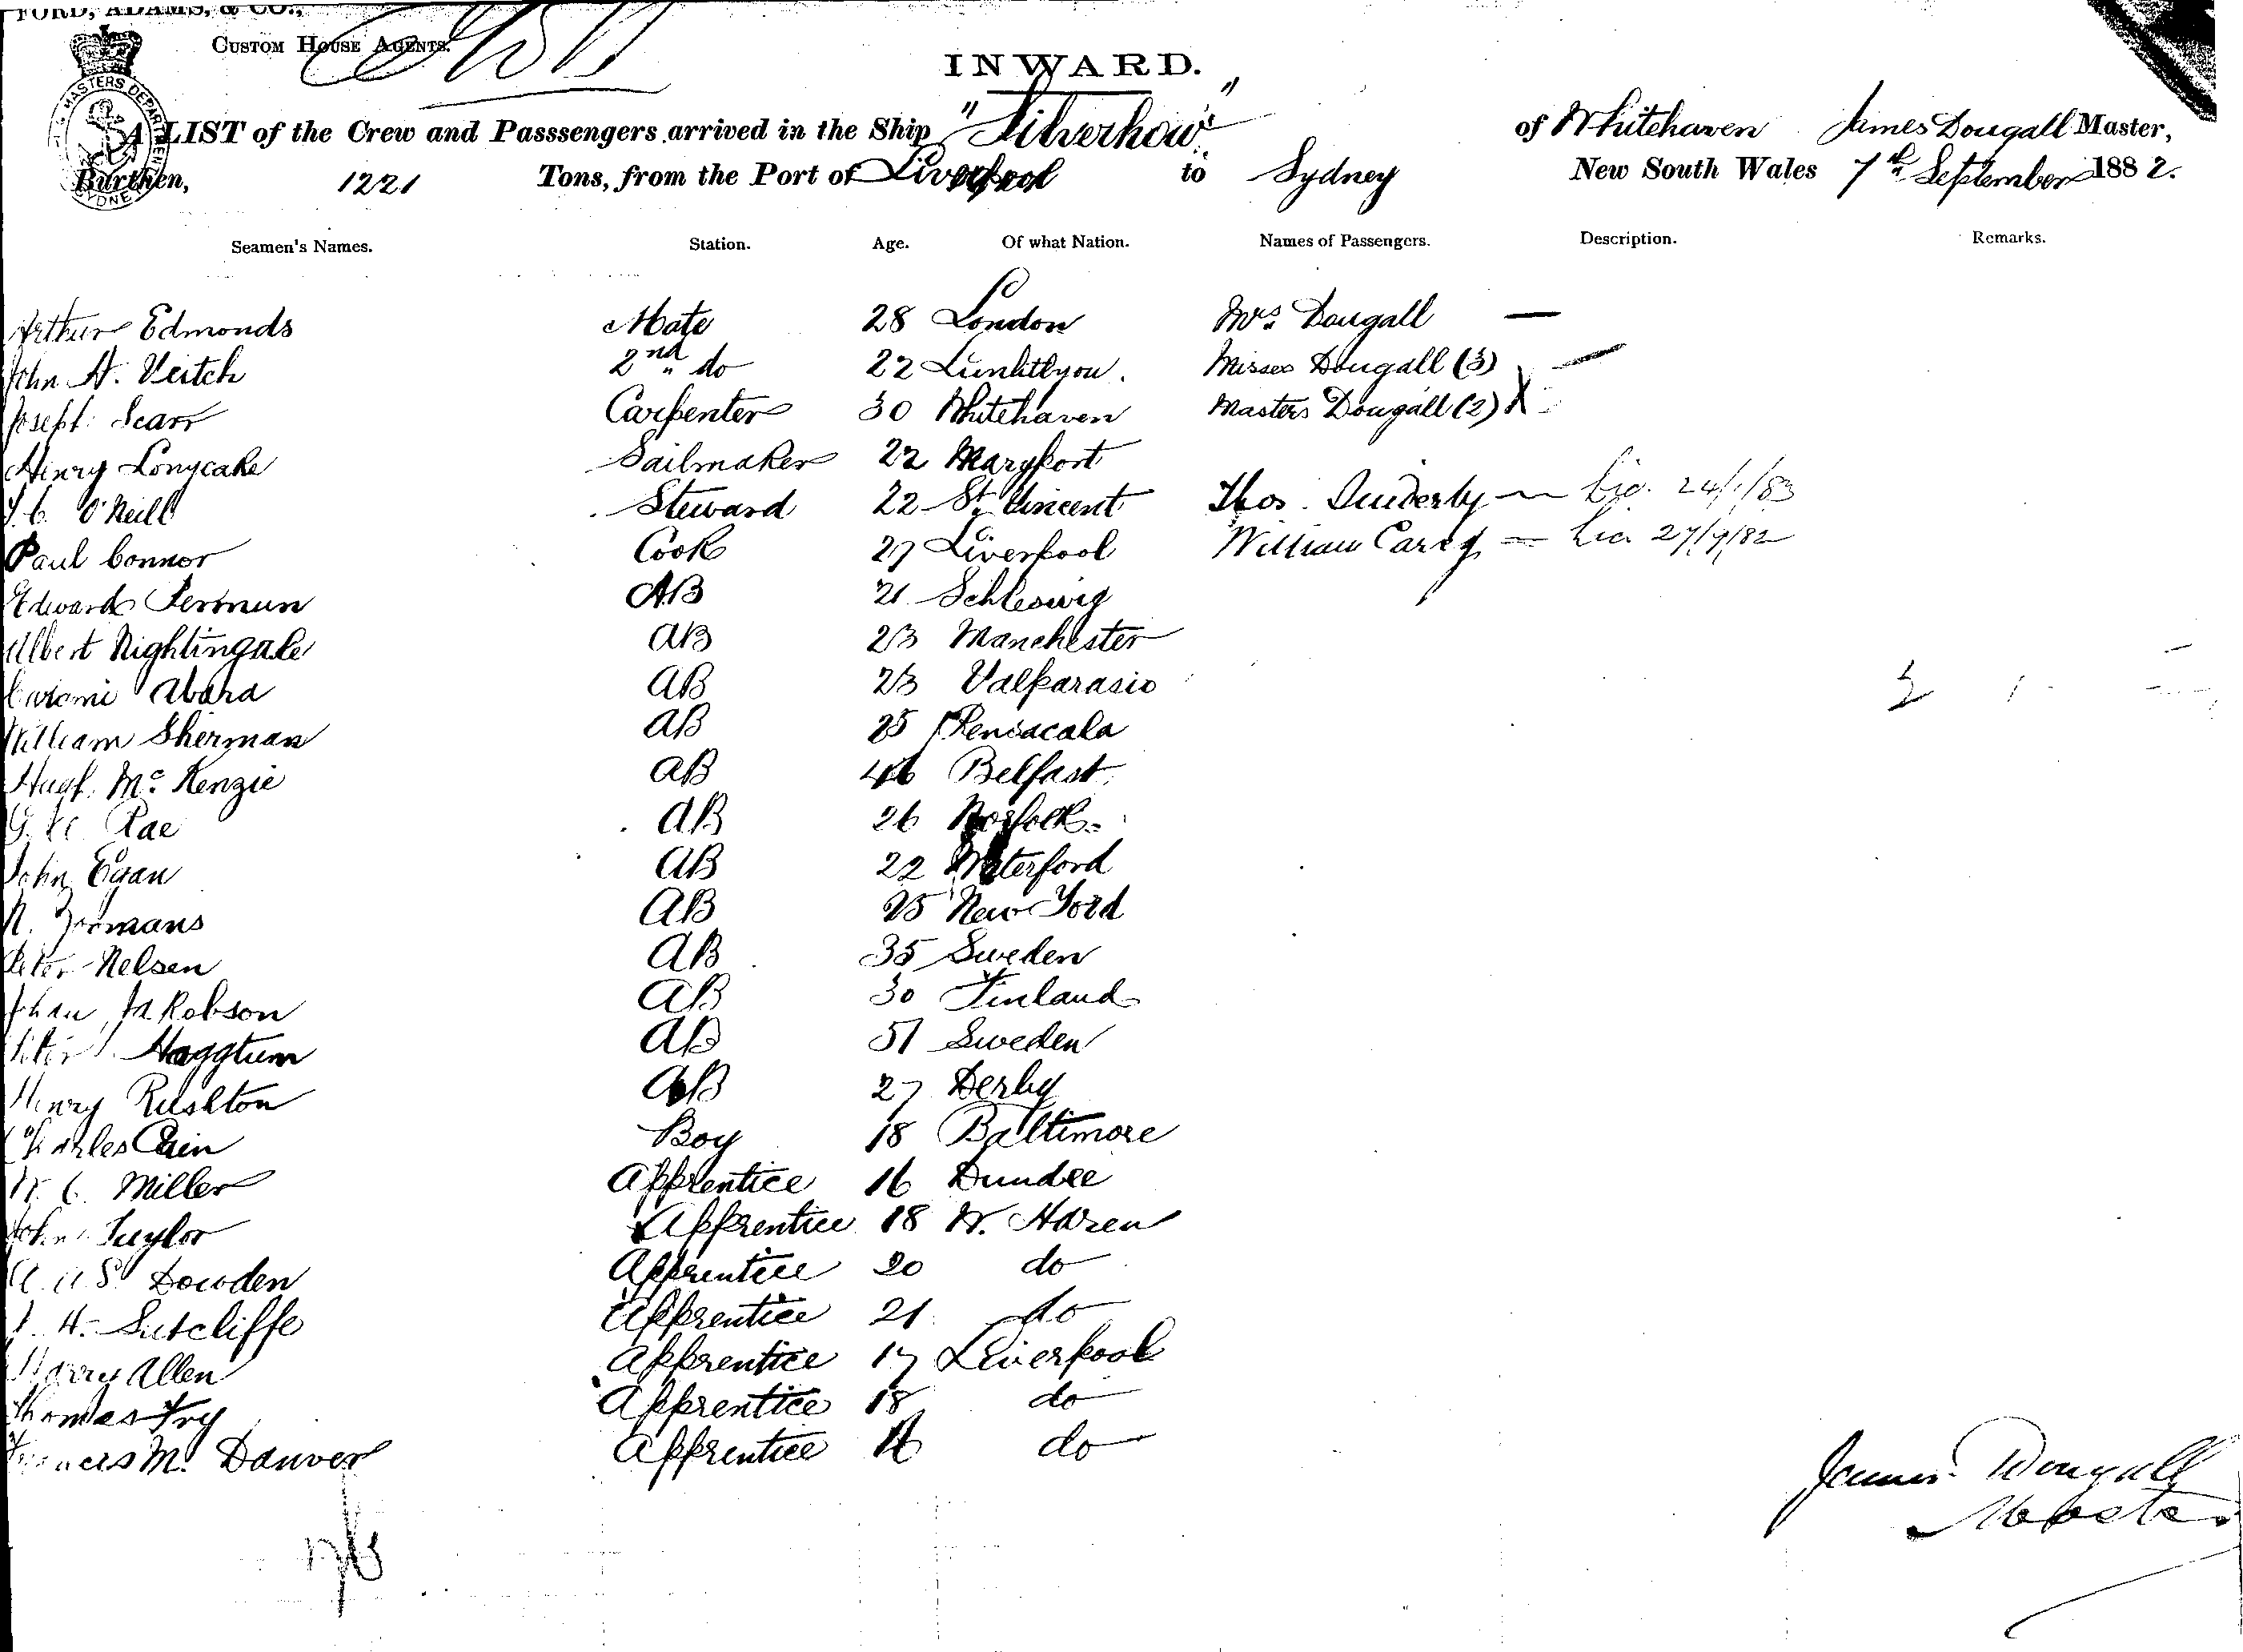 FORD, ADAMS, & CO.,
CUSTOM HOUSE AGENTS.
INWARD.
A LIST of the Crew and Passsengers arrived in the Ship "Silverhow" of Whitehaven James Dougall Master,
Burthen, 1221 Tons, from the Port of Liverpool to Sydney New South Wales 7th September 1882.
Seamen's Names. Station. Age. Of what Nation. Names of Passengers. Description. Remarks.
Arthur Edmonds Mate 28 London Mrs. Dougall —
John A. Veitch 2nd do 22 Misses Dougall (3) —
Joseph Scarr Carpenter 30 Whitehaven Masters Dougall (2) X
Henry Longcake Sailmaker 22 Maryport
O'Neill Steward 22 St. Vincent Thos. — Lic. 24/1/83
Paul Connor Cook 27 Liverpool William Carey — Lic. 27/9/82
Edward AB 21 Schleswig
Albert Nightingale AB 23 Manchester
Abara AB 23 Valparasio
William Sherman AB 25 Pensacala
Hugh McKenzie AB 46 Belfast
Rae AB 26 Norfolk
John Egan AB 22 Waterford
N. AB 25 New York
Peter Nelsen AB 35 Sweden
Johan Jakobson AB 30 Finland
Peter Haggtum AB 51 Sweden
Henry Rushton AB 27 Derby
Charles Cain Boy 18 Baltimore
W. C. Miller Apprentice 16 Dundee
John Taylor Apprentice 18 W. Haven
Dowden Apprentice 20 do
H. Sutcliffe Apprentice 21 do
Harry Allen Apprentice 17 Liverpool
Thomas Fry Apprentice 18 do
Francis M. Danver Apprentice 16 do
James Dougall
Master